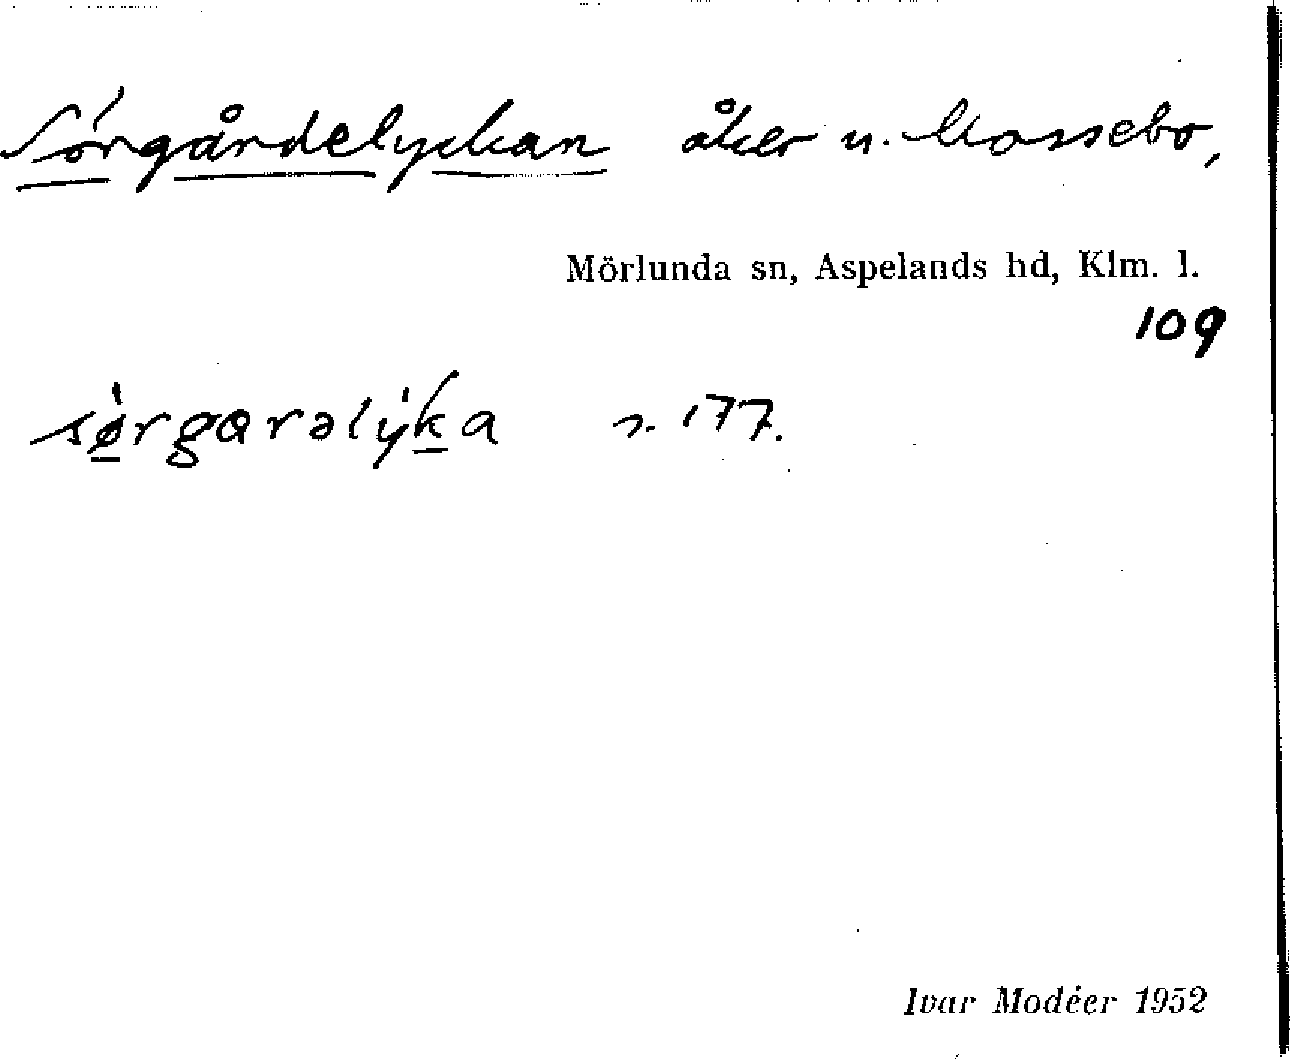 Sörgårdelyckan åker u. Mossebo,
Mörlunda sn, Aspelands hd, Klm. l.
109
sø̀rgɑrəlỳka r. 177.
Ivar Modéer 1952